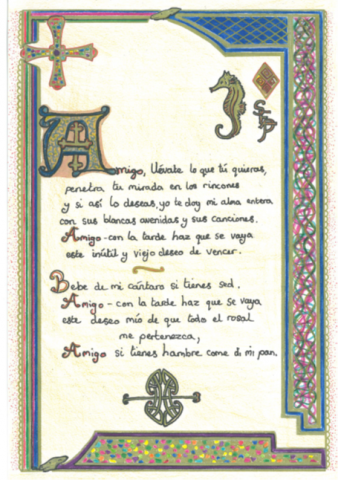 Amigo, llévate lo que tú quieras,
penetra tu mirada en los rincones
y si así lo deseas, yo te doy mi alma entera
con sus blancas avenidas y sus canciones.
Amigo - con la tarde haz que se vaya
este inútil y viejo deseo de vencer.
Bebe de mi cántaro si tienes sed.
Amigo - con la tarde haz que se vaya
este deseo mío de que todo el rosal
me pertenezca,
Amigo si tienes hambre come di mi pan.